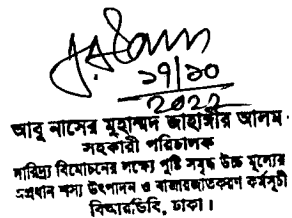 ১৭/১০
২০২২
আবু নাসের মুহাম্মদ জাহাঙ্গীর আলম
সহকারী পরিচালক
দারিদ্র্য বিমোচনের লক্ষ্যে পুষ্টি সমৃদ্ধ উচ্চ মূল্যের
অপ্রধান শস্য উৎপাদন ও বাজারজাতকরণ কর্মসূচী
বিআরডিবি, ঢাকা।